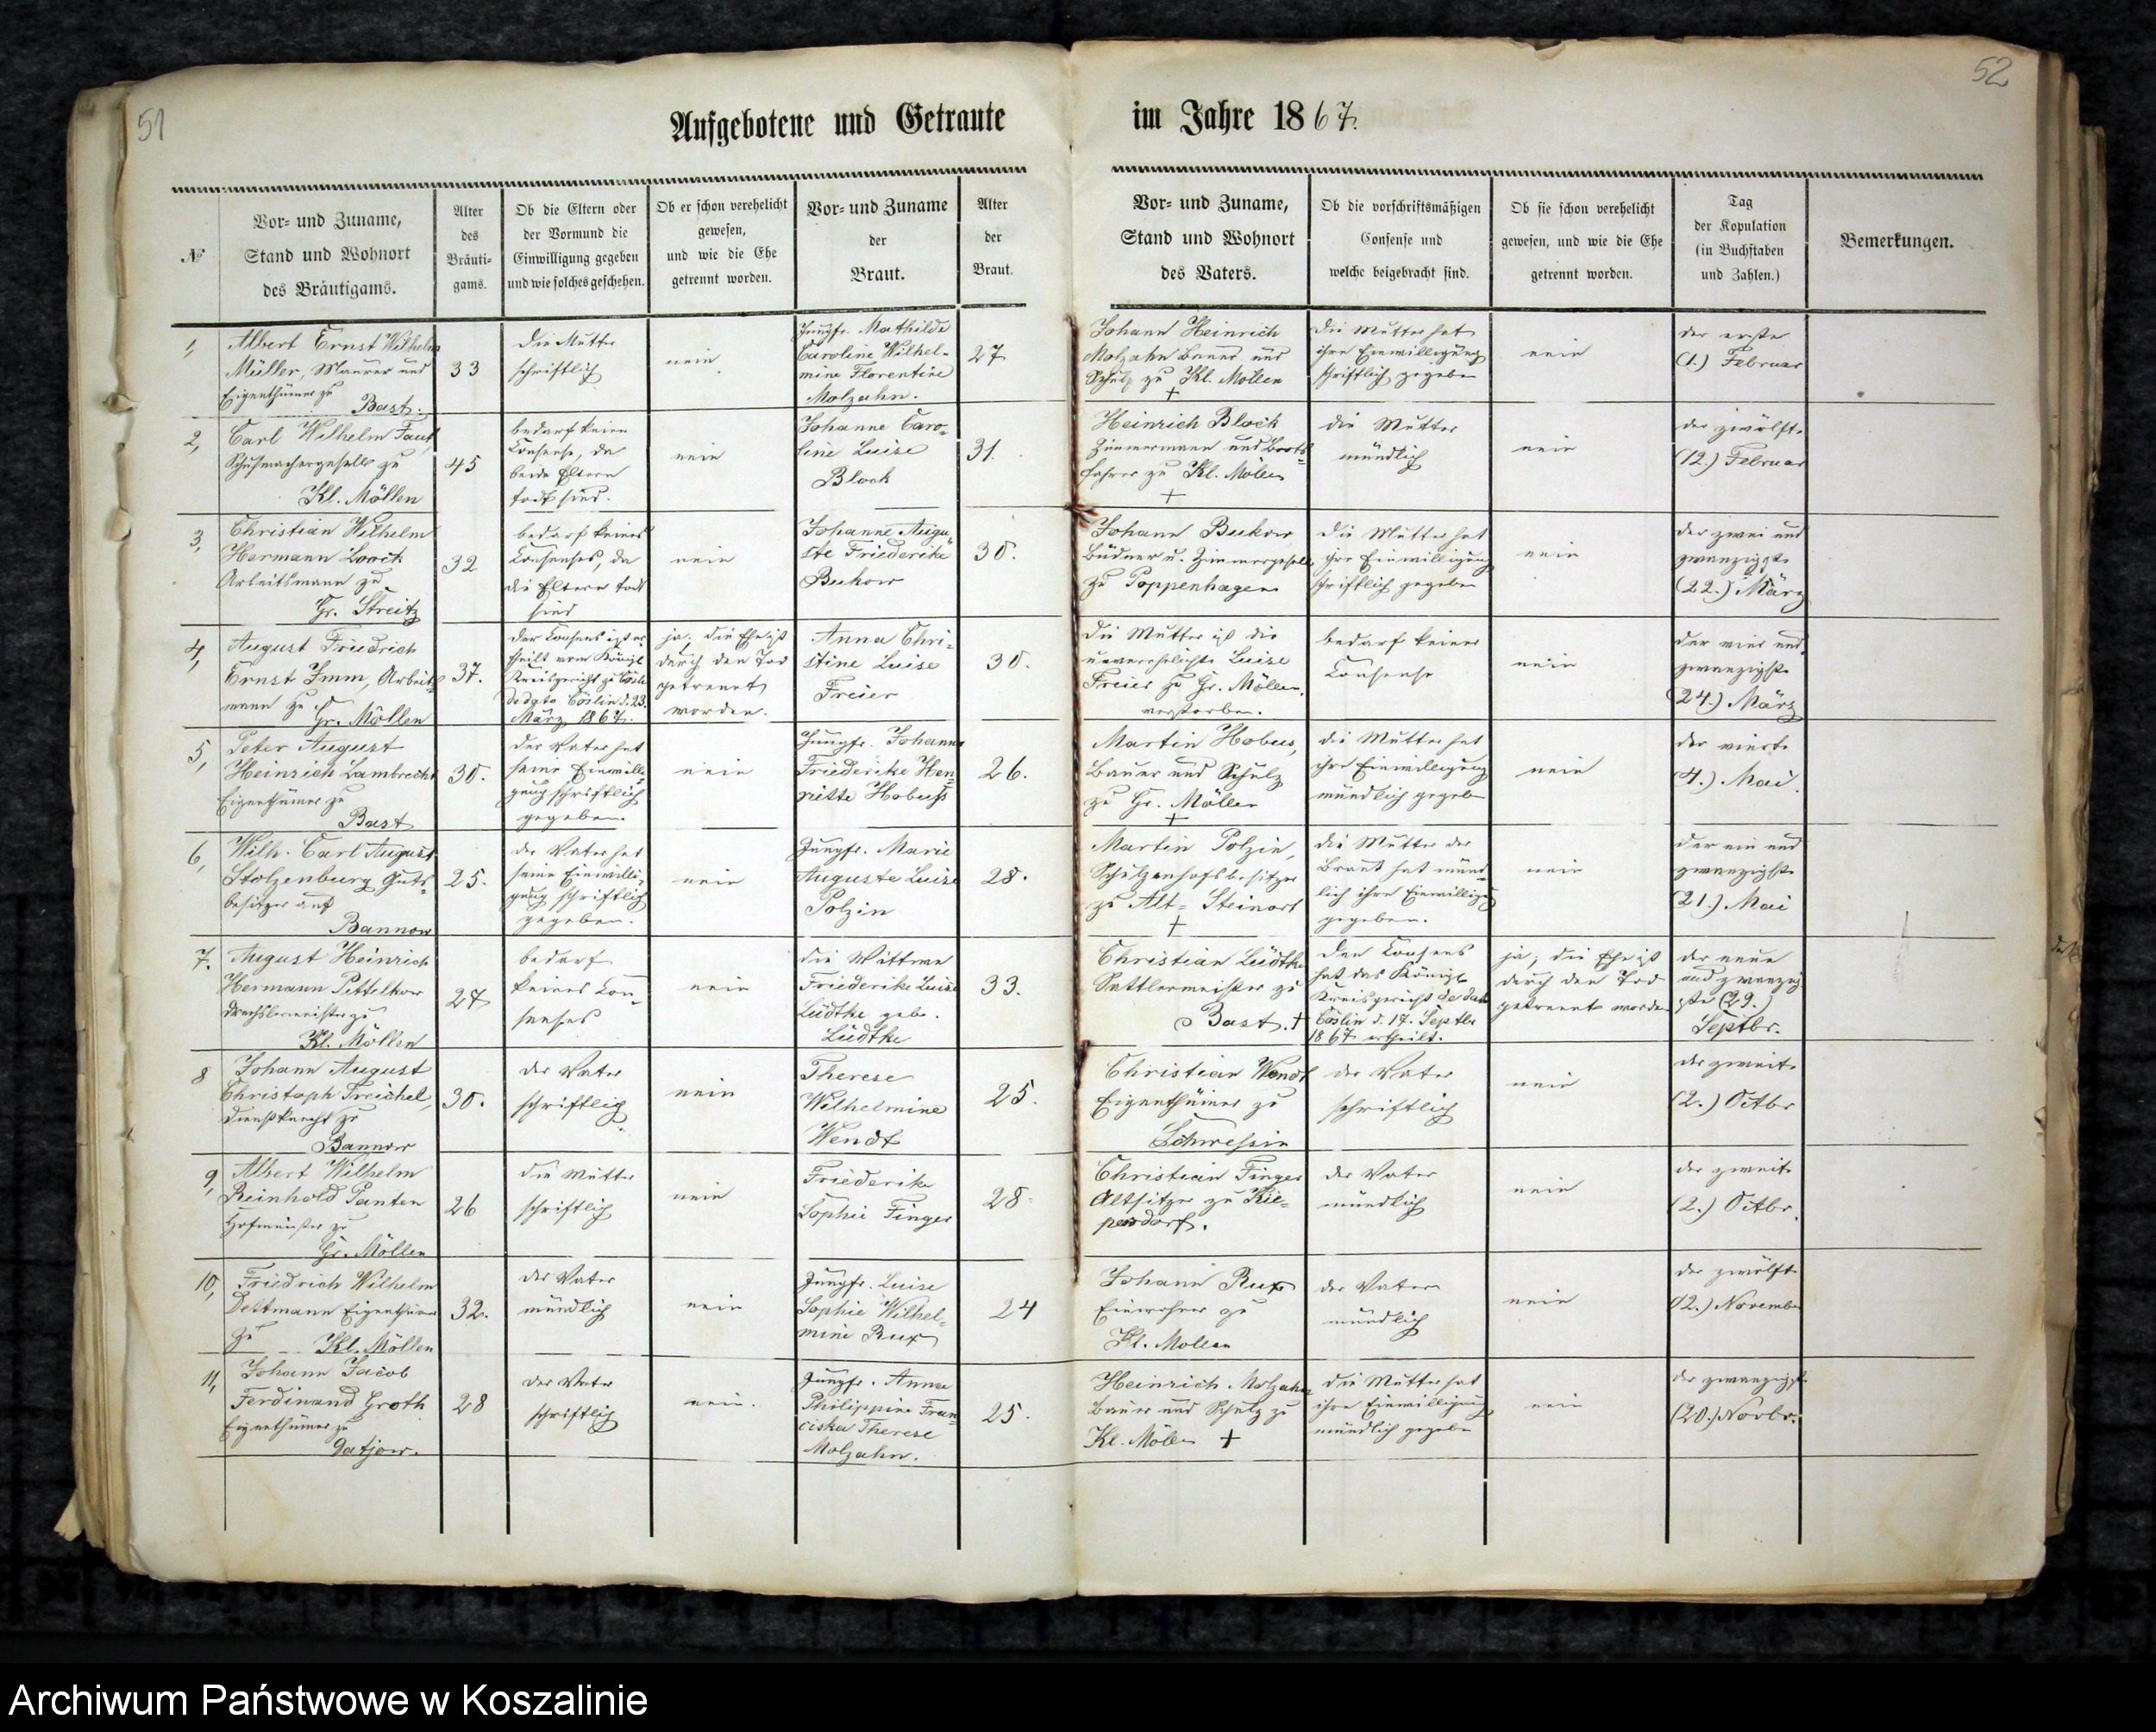 51
52
Aufgebotene und Getraute im Jahre 1867.
№
Vor- und Zuname,
Stand und Wohnort
des Bräutigams.
Alter
des
Bräuti-
gams.
Ob die Eltern oder
der Vormund die
Einwilligung gegeben
und wie solches geschehen.
Ob er schon verehelicht
gewesen,
und wie die Ehe
getrennt worden.
Vor- und Zuname
der
Braut.
Alter
der
Braut.
Vor- und Zuname,
Stand und Wohnort
des Vaters.
Ob die vorschriftsmäßigen
Consense und
welche beigebracht sind.
Ob sie schon verehelicht
gewesen, und wie die Ehe
getrennt worden.
Tag
der Kopulation
(in Buchstaben
und Zahlen.)
Bemerkungen.
1,
Albert Ernst Wilhelm
Müller, Maurer und
Eigenthümer zu
Bast.
33
Die Mutter
schriftlich
nein
Jungfr. Mathilde
Caroline Wilhel-
mine Florentine
Molzahn.
27
Johann Heinrich
Molzahn Bauer und
Schulz zu Kl. Möllen
+
Die Mutter hat
ihre Einwilligung
schriftlich gegeben
nein
der erste
(1.) Februar
2,
Carl Wilhelm
Schuhmachergeselle zu
Kl. Möllen
45
bedarf keine
Consense, da
beide Eltern
todt sind.
nein
Johanne Caro-
line Luise
Block
31.
Heinrich Block
Zimmermann und
zu Kl. Möllen
+
die Mutter
mündlich
nein
der zwölfte
(12.) Februar
3,
Christian Wilhelm
Hermann
Arbeitsmann zu
Gr. Streitz
32
bedarf keines
Consenses, da
die Eltern todt
sind
nein
Johanne Augu-
ste Friederike
Bukow
30.
Johann Bukow
Büdner u. Zimmergesell
zu Poppenhagen
Die Mutter hat
ihre Einwilligung
schriftlich gegeben
nein
der zwei und
zwanzigste
(22.) März
4,
August Friedrich
Ernst Imm, Arbeits-
mann zu Gr. Möllen
37.
Der Consens ist er-
theilt vom Königl.
Kreisgericht zu Cöslin
de dato Cöslin d. 23.
März 1867.
ja; die Ehe ist
durch den Tod
getrennt
worden.
Anna Chri-
stine Luise
Freier
30.
Die Mutter ist die
unverehelichte Luise
Freier zu Gr. Möllen,
verstorben.
bedarf keiner
Consense
nein
der vier und
zwanzigste
(24.) März
5,
Peter August
Heinrich Lambrecht
Eigenthümer zu
Bast
30.
der Vater hat
seine Einwilli-
gung schriftlich
gegeben.
nein
Jungfr. Johanne
Friederike Hen-
riette Hobuss
26.
Martin Hobus,
Bauer und Schulz
zu Gr. Möllen
+
die Mutter hat
ihre Einwilligung
mündlich gegeben
nein
der vierte
(4.) Mai.
6,
Wilh. Carl August
Stolzenburg Guts-
besitzer auf
Bannow
25.
der Vater hat
seine Einwilli-
gung schriftlich
gegeben.
nein
Jungfr. Marie
Auguste Luise
Polzin
28.
Martin Polzin,
Schulzenhofsbesitzer
zu Alt-Steinort
+
die Mutter der
Braut hat münd-
lich ihre Einwilligung
gegeben.
nein
der ein und
zwanzigste
(21.) Mai
7.
August Heinrich
Hermann Pettelkow
Drechslermeister zu
Kl. Möllen
27
bedarf
keines Con-
senses
nein
die Wittwe
Friederike Luise
Lüdtke gebr.
Lüdtke
33.
Christian Lüdtke
Sattlermeister zu
Bast. +
Den Consens
hat das Königl.
Kreisgericht de dato
Cöslin d. 17. Septbr
1867 ertheilt.
ja; die Ehe ist
durch den Tod
getrennt worden
der neun
und zwanzig
ste (29.)
Septbr.
8
Johann August
Christoph Treichel,
Dienstknecht zu
Bannow
30.
der Vater
schriftlich
nein
Therese
Wilhelmine
Wendt
25.
Christian Wendt
Eigenthümer zu
Schwessin
der Vater
schriftlich
nein
der zweite
(2.) Octbr
9,
Albert Wilhelm
Reinhold Panten
Hofmeister zu
Gr. Möllen
26
die Mutter
schriftlich
nein
Friederike
Sophie Finger
28
Christian Finger
Altsitzer zu Kie-
persdorf.
der Vater
mündlich
nein
der zweite
(2.) Octbr.
10,
Friedrich Wilhelm
Dettmann Eigenthümer
zu Kl. Möllen
32.
der Vater
mündlich
nein
Jungfr. Luise
Sophie Wilhel-
mine Rux
24
Johann Rux
Einwohner zu
Kl. Mollen
der Vater
mündlich
nein
der zwölfte
(12.) November
11,
Johann Jacob
Ferdinand Groth
Eigenthümer zu
Datjow.
28
der Vater
schriftlich
nein.
Jungfr. Anna
Philippine Fran-
ciska Therese
Molzahn.
25.
Heinrich Molzahn
Bauer und Schulz zu
Kl. Möllen +
die Mutter hat
ihre Einwilligung
mündlich gegeben
nein
der zwanzigste
(20.) Novbr.
Archiwum Państwowe w Koszalinie